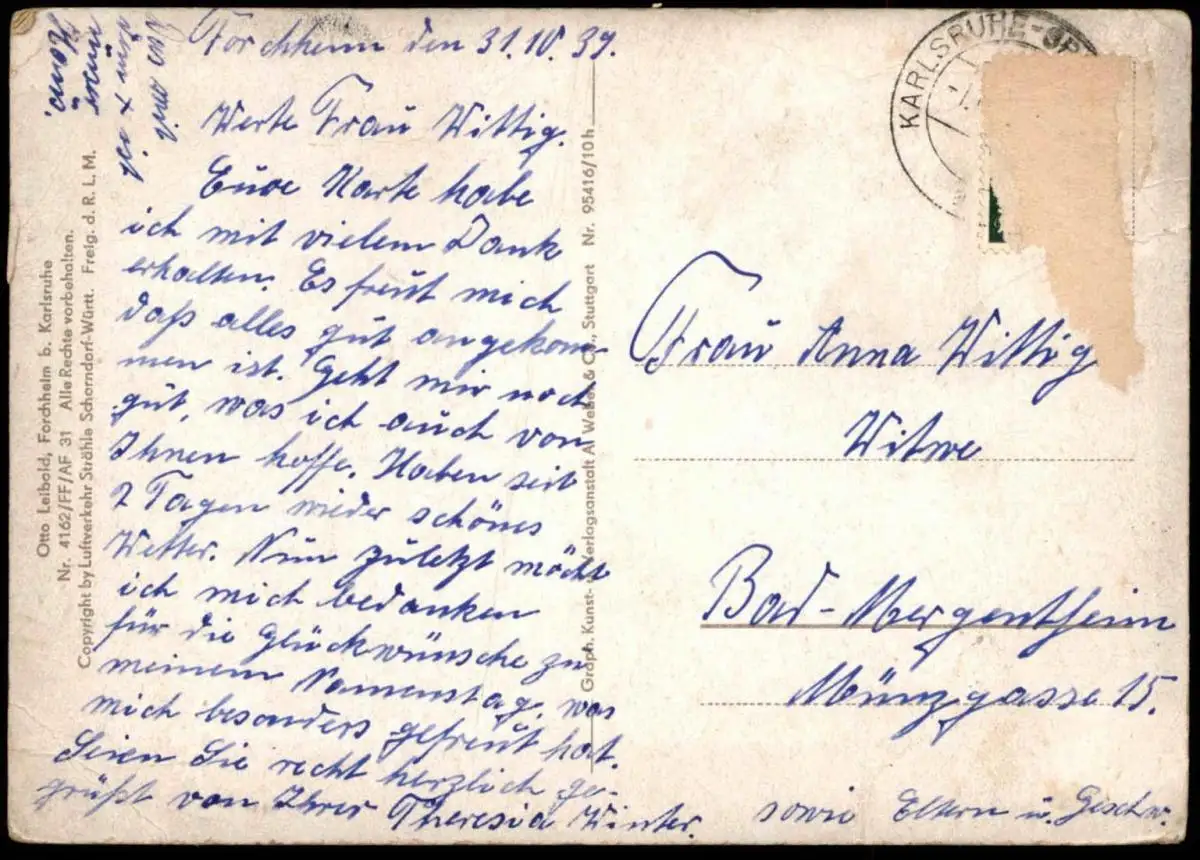 Forchheim den 31.10.39.
Werte Frau Wittig.
Eure Karte habe
ich mit vielem Dank
erhalten. Es freut mich
daß alles gut angekom-
men ist. Geht mir noch
gut, was ich auch von
Ihnen hoffe. Haben seit
2 Tagen wieder schönes
Wetter. Nun zuletzt möcht
ich mich bedanken
für die Glückwünsche zu
meinem Namenstag, was
mich besonders gefreut hat.
Seien Sie recht herzlich ge-
grüßt von Ihrer Theresia Winter.
sowie Eltern u. Geschw.
Otto Leibold, Forchheim b. Karlsruhe
Nr. 4162/FF/AF 31 Alle Rechte vorbehalten.
Copyright by Luftverkehr Strähle Schorndorf-Württ. Freig. d. R. L. M.
Graph. Kunst- u. Verlagsanstalt A. Weber & Co., Stuttgart Nr. 95416/10h
KARLSRUHE
Frau Anna Wittig
Witwe
Bad-Mergentheim
Münzgasse 15.